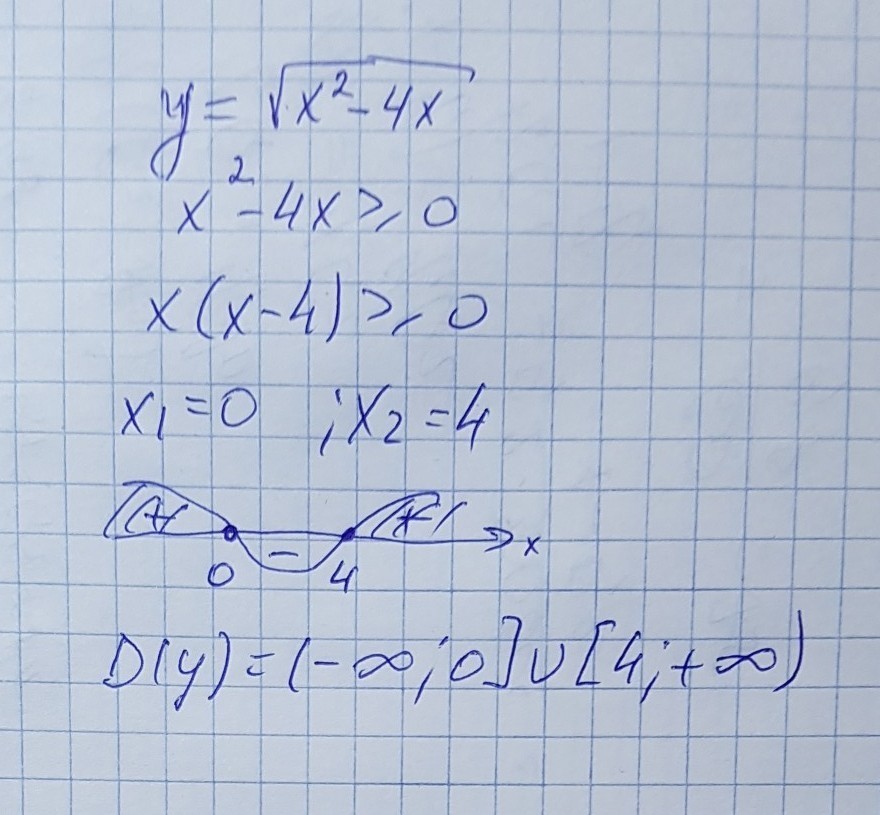 y = √(x² - 4x)
x² - 4x ⩾ 0
x(x-4) ⩾ 0
x₁ = 0 ; x₂ = 4
+ - + x
0 4
D(y) = (-∞; 0] ∪ [4; +∞)